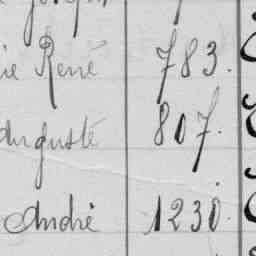 ie René 783.
Auguste 807.
André 1230.